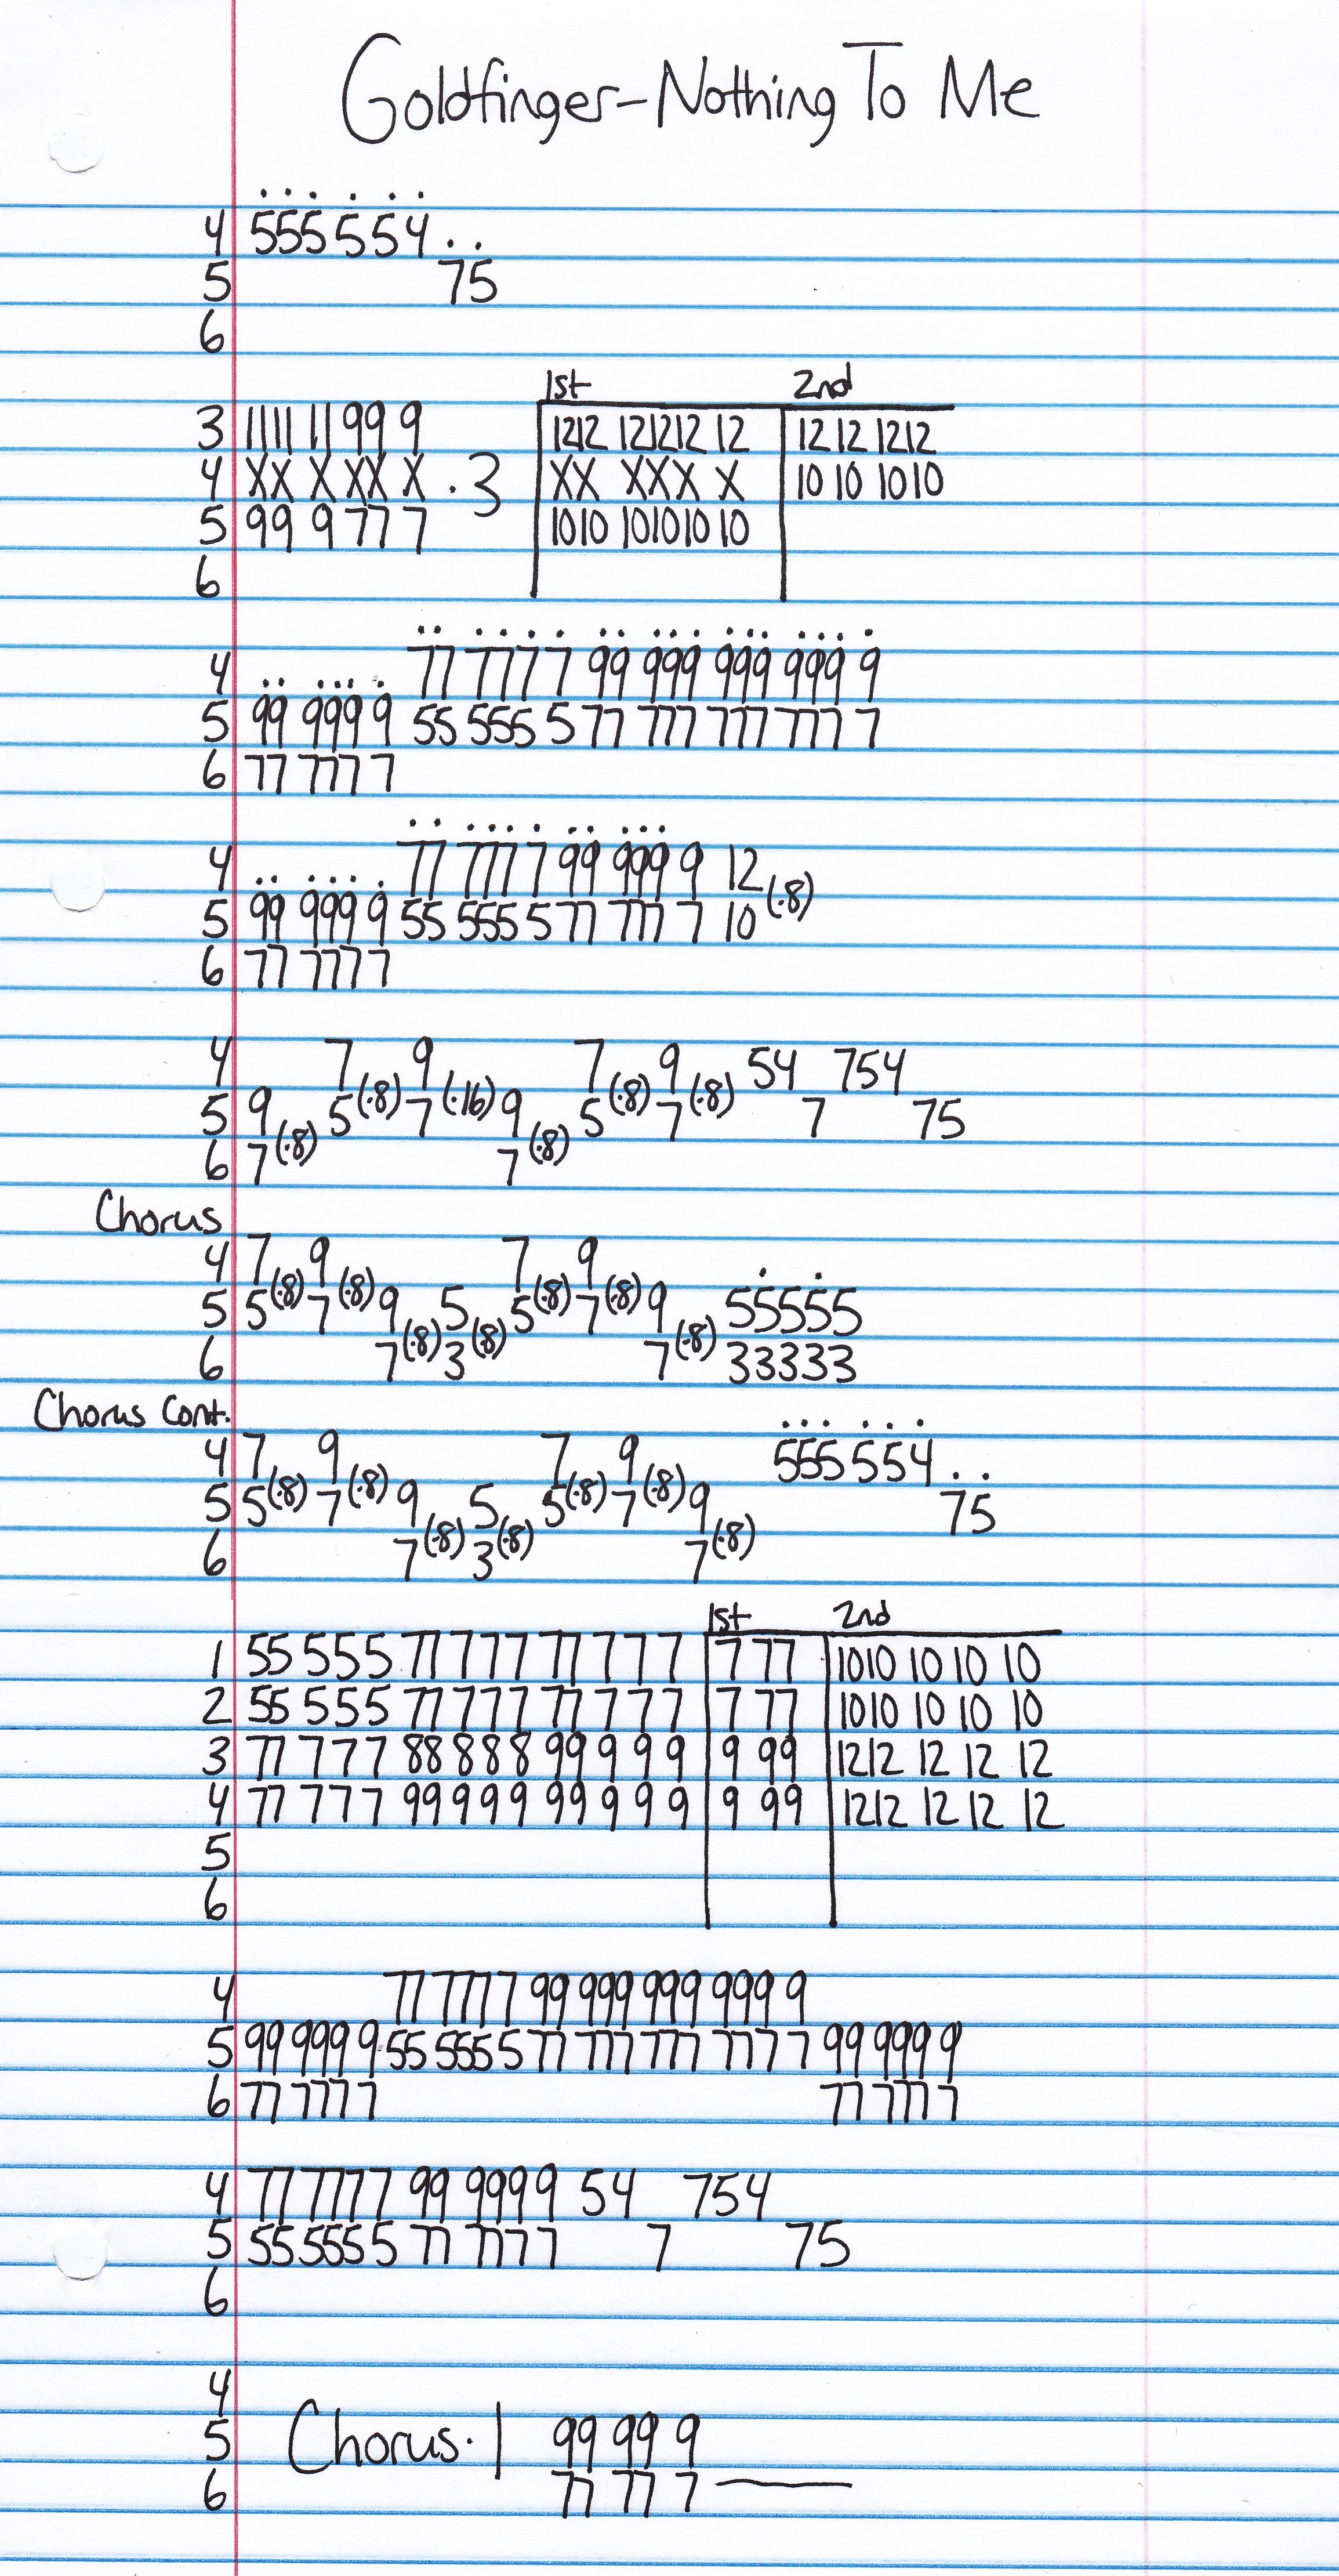 Goldfinger-Nothing To Me
4 555 5 5 4 . .
5 75
6
1st 2nd
3 1111 11 99 9 1212 121212 12 12 12 1212
4 XX X XX X .3 XX XXX X 10 10 1010
5 99 9 77 7 1010 101010 10
6
4 77 777 7 99 999 999 999 9
5 99 999 9 55 555 5 77 777 777 777 7
6 77 777 7
4 77 777 7 99 999 9 12
5 99 999 9 55 555 5 77 777 7 10 (.8)
6 77 777 7
4 7 9 7 9 54 754
5 9 5 (.8) 7 (.16) 9 5 (.8) 7 (.8) 7 75
6 7 (.8) 7 (.8)
Chorus
4 7 9 7 9
5 5 (.8) 7 (.8) 9 5 5 (.8) 7 (.8) 9 55555
6 7 (.8) 3 (.8) 7 (.8) 33333
Chorus Cont.
4 7 9 7 9 555 554 . .
5 5 (.8) 7 (.8) 9 5 5 (.8) 7 (.8) 9 75
6 7 (.8) 3 (.8) 7 (.8)
1st 2nd
1 55 5 5 5 77 7 7 7 77 7 7 7 7 77 1010 10 10 10
2 55 5 5 5 77 7 7 7 77 7 7 7 7 77 1010 10 10 10
3 77 7 7 7 88 8 8 8 99 9 9 9 9 99 1212 12 12 12
4 77 7 7 7 99 9 9 9 99 9 9 9 9 99 1212 12 12 12
5
6
4 77 777 7 99 999 999 999 9
5 99 999 9 55 555 5 77 777 777 777 7 99 999 9
6 77 777 7 77 777 7
4 77 777 7 99 999 9 54 754
5 55 555 5 77 777 7 75
6
4
5 Chorus. | 99 99 9
6 77 77 7